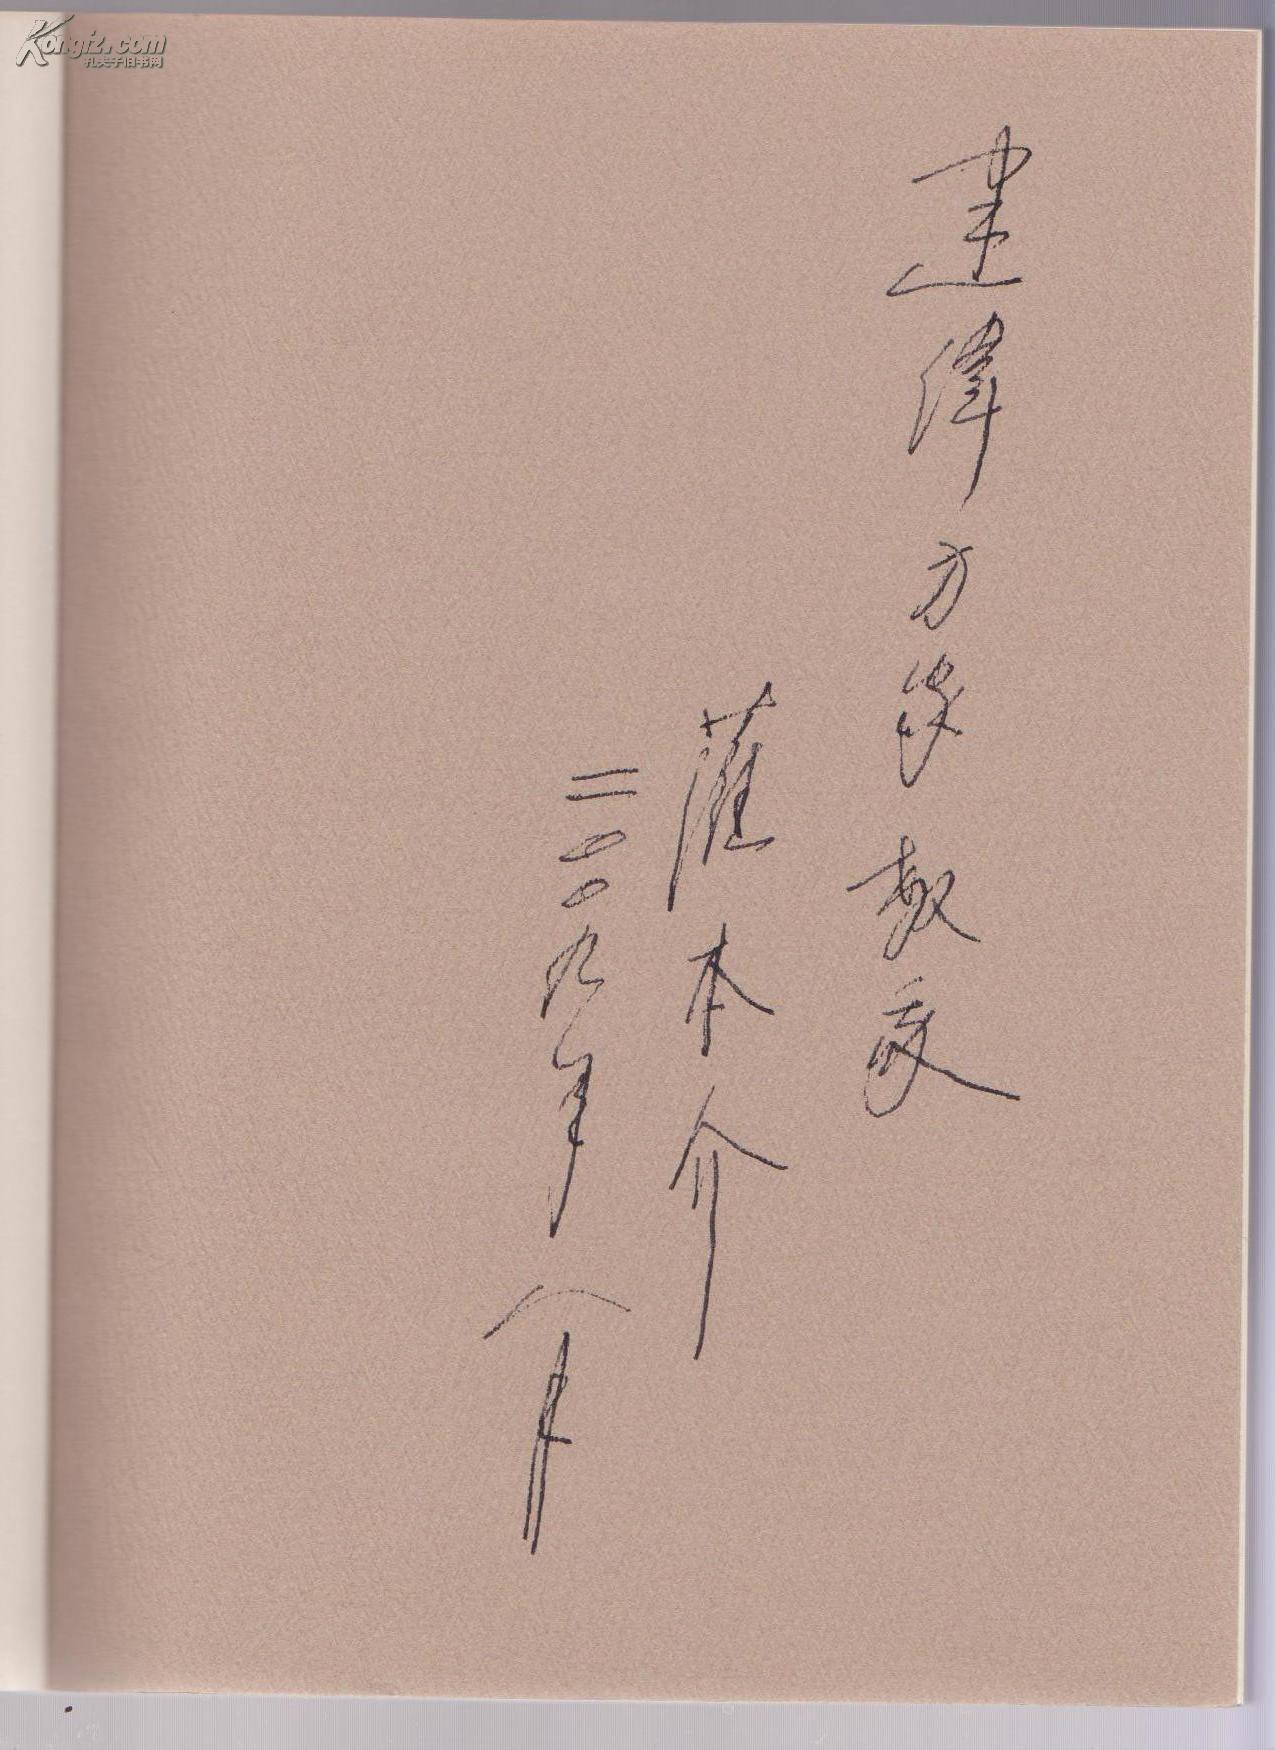 建伟方家教正
崔本介
二〇〇九年八月
Kongfz.com
孔夫子旧书网